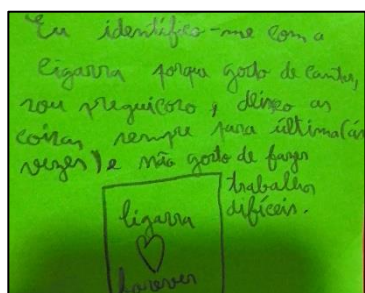 Eu identifico-me com a
Cigarra porque gosto de cantar,
sou preguiçoso, deixo as
coisas sempre para última (ás
vezes) e não gosto de fazer
trabalhos
difíceis.
Cigarra
forever